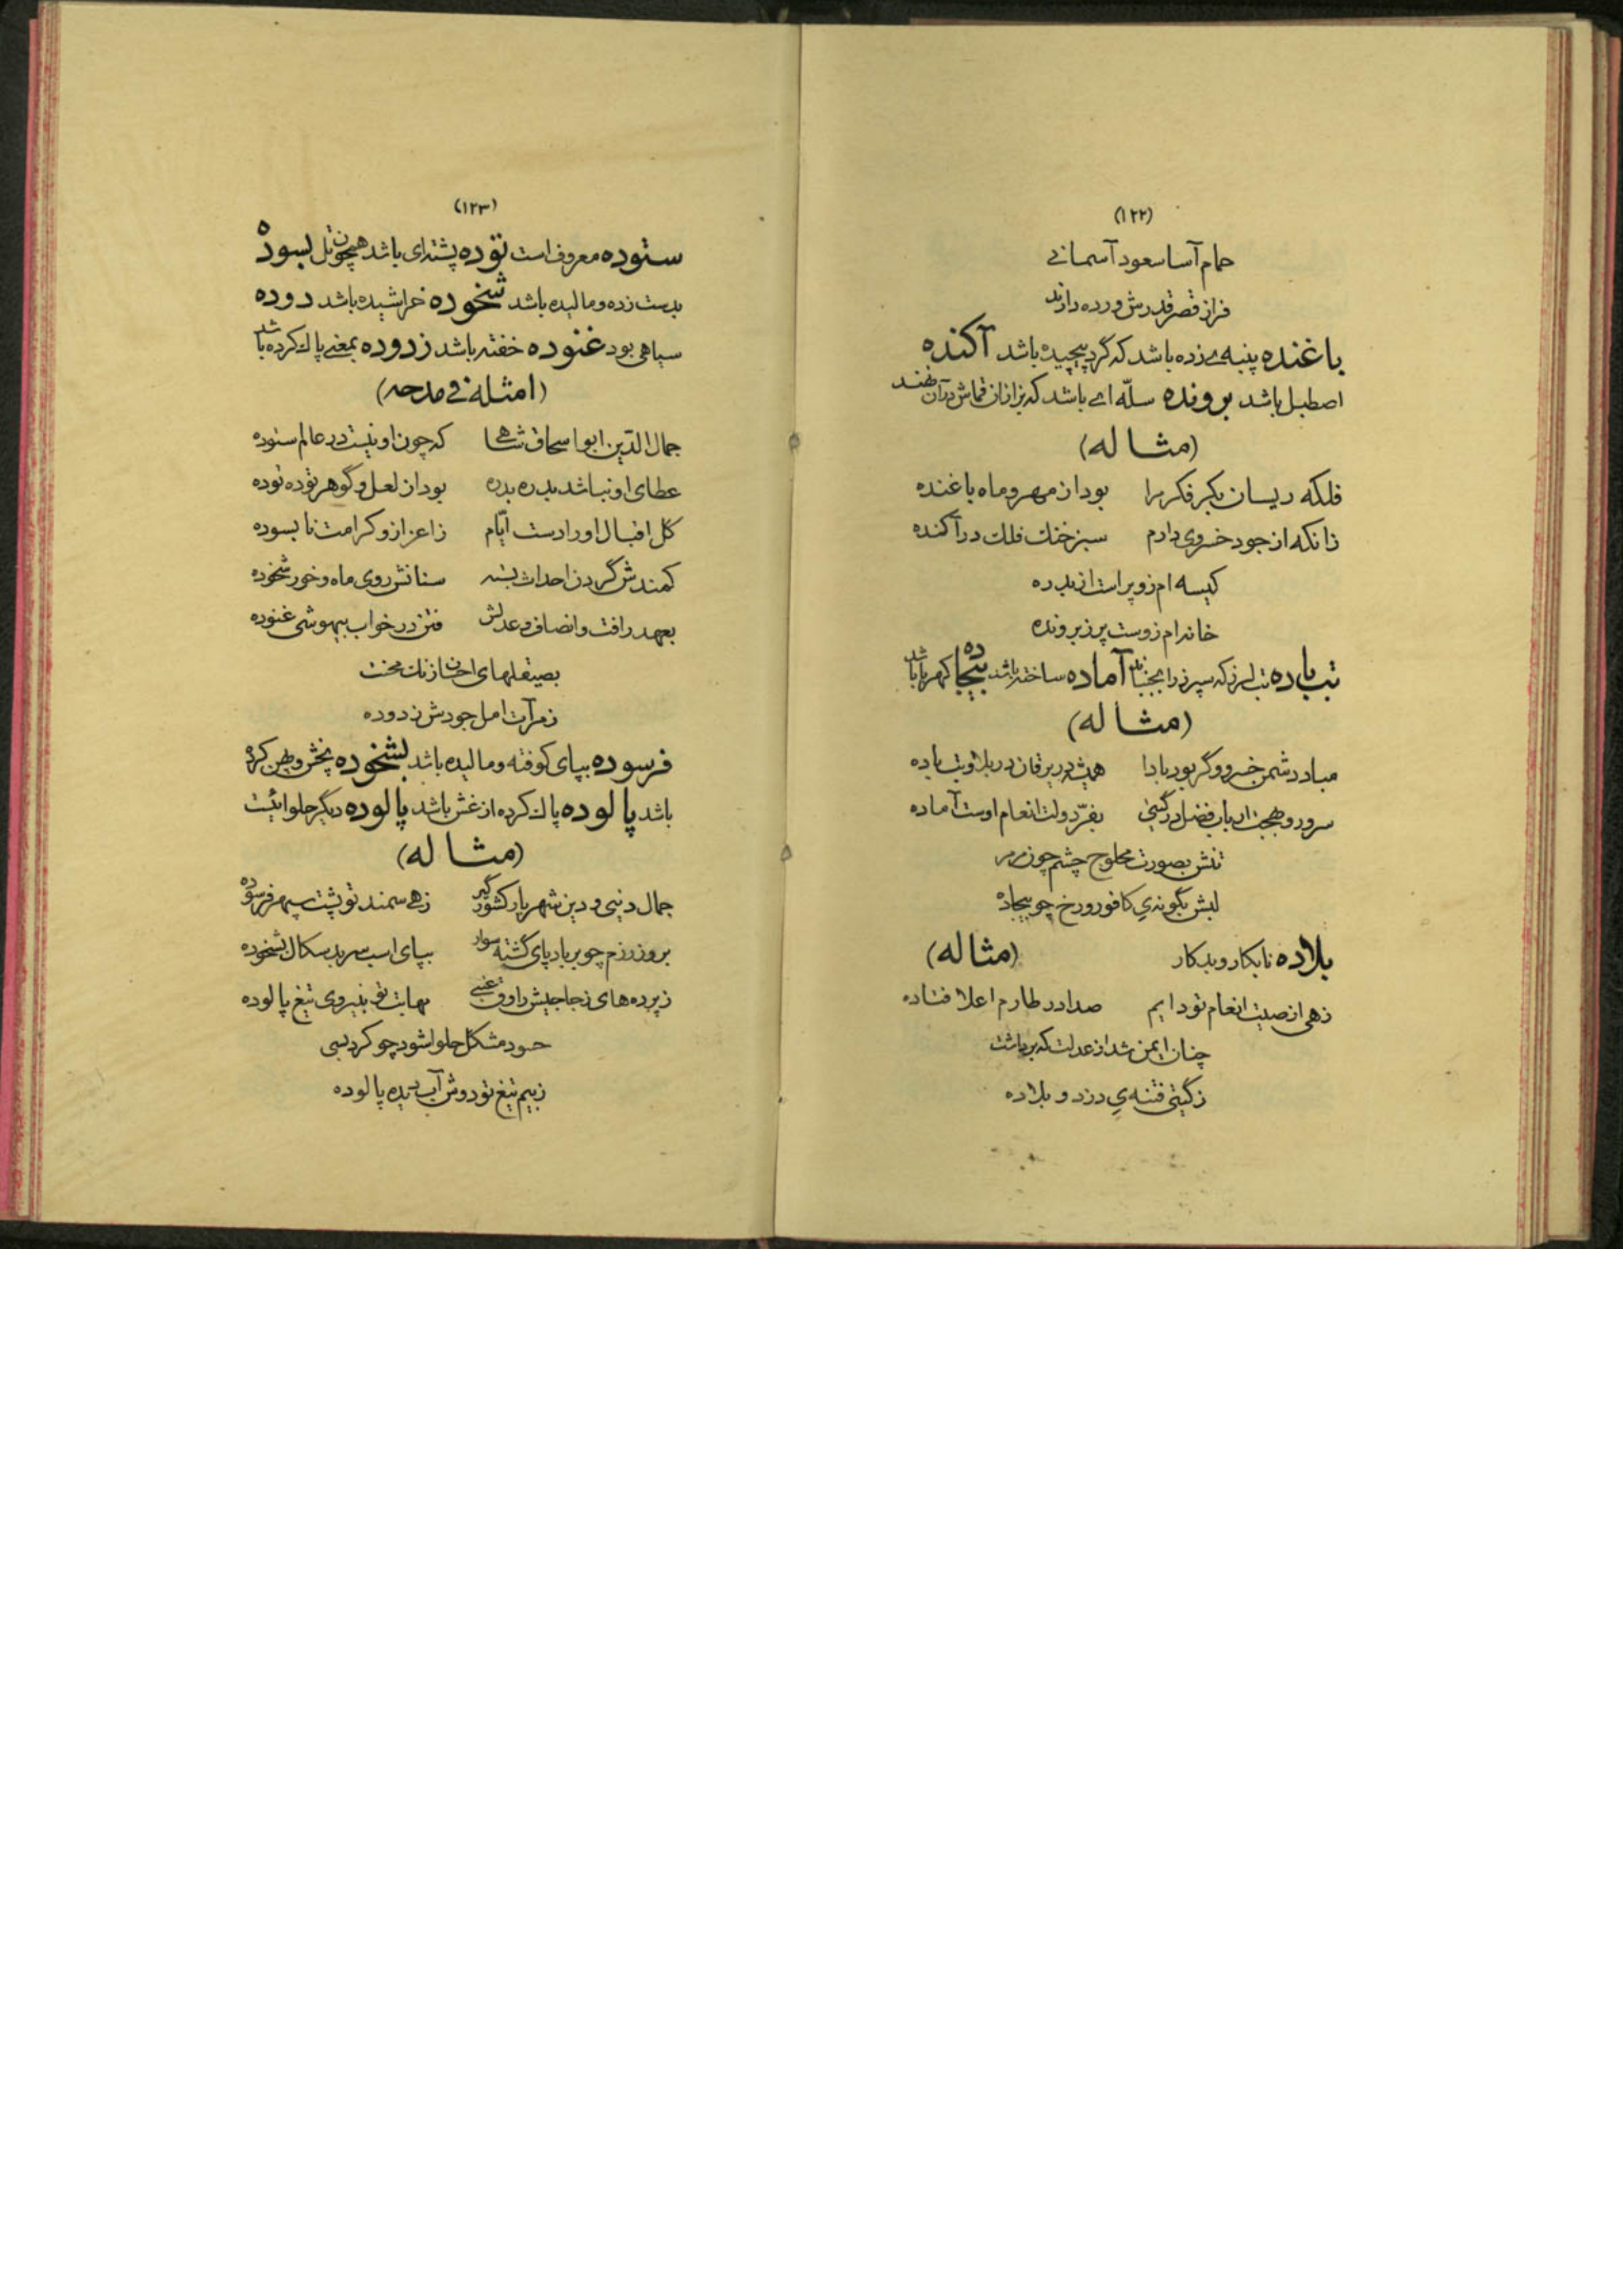 (۱۲۲)
حمام آسا سعود آسمانے
فراز قصر قدرش ورده دارند
باغنده پنبه‌ے زده باشد که گرد پیچیده باشد آکنده
اصطبل باشد برونده سلّه اے باشد که بزازان قماش در آن نهند
(مثاله)
فلکه ریسان بکر فکر مرا بود از مهر و ماه باغنده
زانکه از جود خسروی دارم سبز خنك فلك در آکنده
کیسه ام زو پر است از بدره
خانه ام زوست پر ز برونده
تب باده تب لرز که سپرز را بجنباند آماده ساخته باشد بیجاده کهربا باشد
(مثاله)
مباد دشمن خسرو وگر بود بادا همیشه در یرقان در بلا و تب باده
سرور و بهجت ارباب فضل در گیتی بفرّ دولت انعام اوست آماده
تنش بصورت محلوج چشم چون
لبش بگونه‌ي کافور و رخ چو بیجاده
بلاده نابکار و بدکار (مثاله)
زهی از صیت انعام تو دایم صدا در طارم اعلا فتاده
چنان ایمن شد از عدلت که برداشت
ز گیتی فتنه‌ي دزد و بلاده
(۱۲۳)
ستوده معروف است توده پشته‌ای باشد همچون تل بسوده
بدست زده و مالیده باشد شخوده خراشیده باشد دوده
سیاهی بود غنوده خفته باشد زدوده بمعنی پاك کرده باشد
(امثله فی مدحه)
جمال الدّین ابو اسحاق شاهے که چون او نیست در عالم ستوده
عطای او نباشد بدره بدره بود از لعل و گوهر توده توده
گل اقبال او را دست ایّام ز اعزاز و کرامت نابسوده
کمندش گردن احداث بسته سنانش روی ماه و خور شخوده
بعهد رافت و انصاف و عدلش فتن در خواب بیهوشی غنوده
بصیقلهای احسان زنك محنت
ز مرآت امل جودش زدوده
فرسوده بپای کوفته و مالیده باشد بشخوده پخش و پهن کرده
باشد پالوده پاك کرده از غش باشد پالوده دیگر حلوائیست
(مثاله)
جمال دنیی و دین شهریار کشور گیر زهے سمند تو پشت سپهر فرسوده
بروز رزم چو بر باد پای گشته سوار بپای اسب سر بدسکال بشخوده
ز پرده های زجاجیش راوق عنبی بهابت تو بنیروی تیغ پالوده
حسود مشکل حلوا شود چو کرد بسی
ز بیم تیغ تو دوش آب دیده پالوده